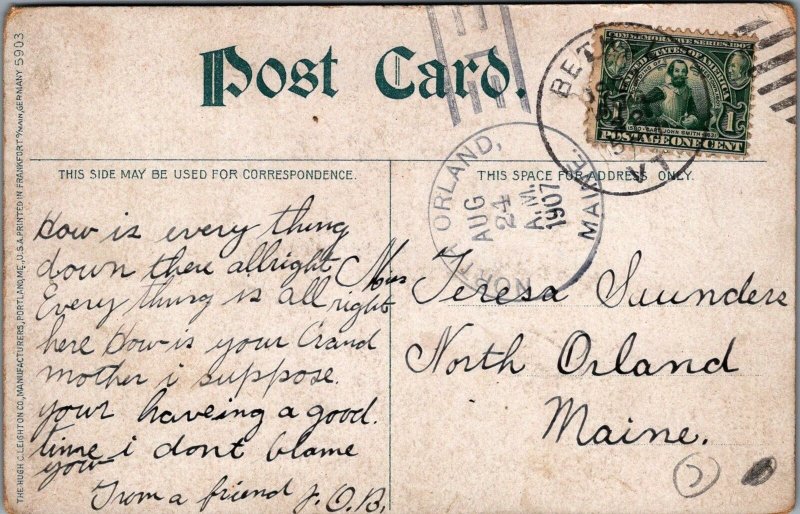 Post Card.
THIS SIDE MAY BE USED FOR CORRESPONDENCE.
THIS SPACE FOR ADDRESS ONLY.
How is every thing
down there allright
Every thing is all right
here How is your Grand
mother i suppose.
your haveing a good.
time i dont blame
you
From a friend J.O.B.
Miss Teresa Saunders
North Orland
Maine.
NORTH ORLAND, MAINE.
AUG
24
A.M.
1907
BET
VT
COMMEMORATIVE SERIES 1907
UNITED STATES OF AMERICA
JOHN SMITH
1
POSTAGE ONE CENT
THE HUGH C. LEIGHTON CO., MANUFACTURERS, PORTLAND, ME., U.S.A. PRINTED IN FRANKFORT o/MAIN, GERMANY 5903